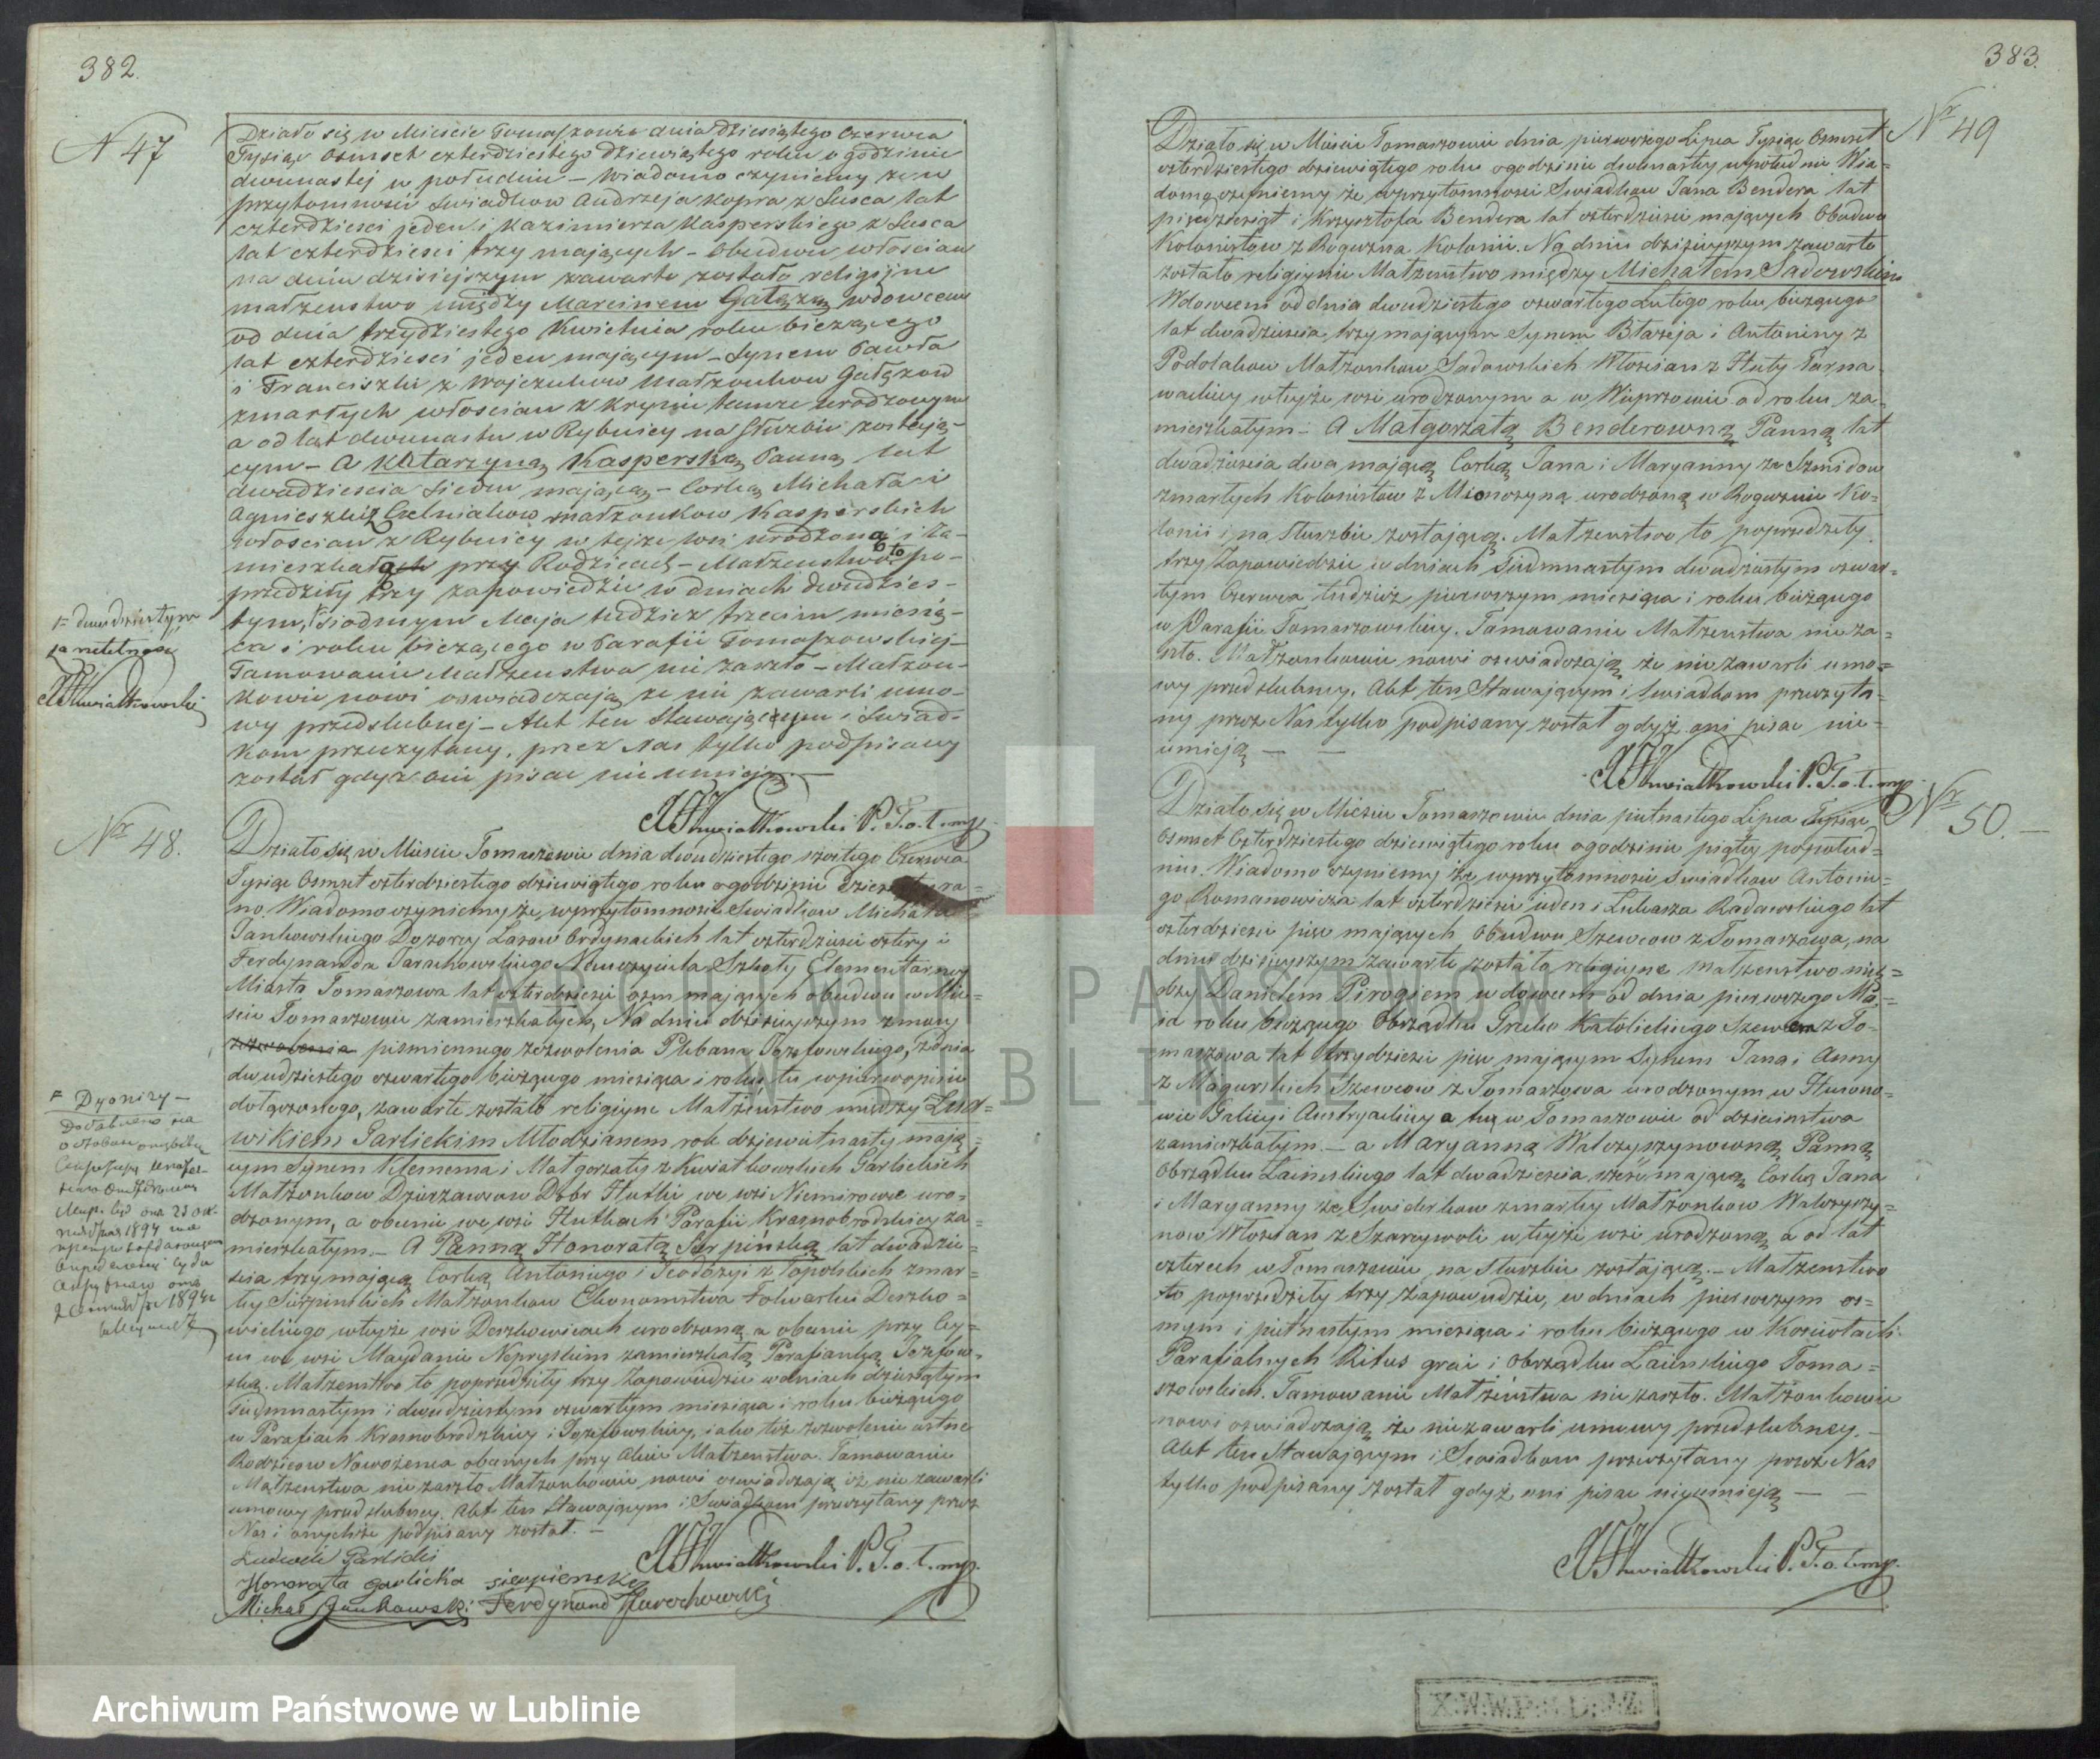 382.
N 47
Działo się w Mieście Tomaszowie dnia dziesiątego Czerwca
Tysiąc Osmset czterdziestego dziewiątego roku o godzinie
dwunastej w południe – Wiadomo czyniemy że w
przytomności Swiadkow Andrzeja Kopra z Susca lat
czterdzieści jeden i Kazimierza Kasperskiego z Susca
lat czterdzieści trzy mających – Obudwu włościan
na dniu dzisiejszym zawarte zostało religijne
małżenstwo między Marcinem Gałęzą wdowcem
od dnia trzydziestego Kwietnia roku bieżącego
lat czterdzieści jeden mającym – Synem Pawła
i Franciszki z Wojczukow Małżonkow Gałęzow
zmarłych włościan z Krynic tamże urodzonym
a od lat dwunastu w Rybnicy na służbie zostają-
cym – A Katarzyną Kasperską Panną lat
dwadzieścia siedm mającą – Corką Michała i
Agnieszki z małżonkow Kasperskich
włościan z Rybnicy w tejże wsi urodzoną i za-
mieszkałą przy Rodzicach – Małżeństwo to po-
przedziły trzy zapowiedzie w dniach dwudzies-
tym, siodmym Maja tudzież trzecim miesią-
ca i roku bieżącego w Parafii Tomaszowskiej –
Tamowanie Małżeństwa nie zaszło – Małżon-
kowie nowi oswiadczają że nie zawarli umo-
wy przedslubnej – Akt ten Stawającym i Swiad-
kom przeczytany, przez Nas tylko podpisany
został gdyż oni pisać nie umieją. –
X Kwiatkowski P. T. o. t. mp.
dwudziestym
za rzetelność
X Kwiatkowski
Nr 48.
Działo się w Mieście Tomaszowie dnia dwudziestego szostego Czerwca
Tysiąc Osmset czterdziestego dziewiątego roku o godzinie ra=
no. Wiadomo czyniemy że w przytomności Swiadkow Michała
Jankowskiego Dozorcy Lasow Ordynackich lat czterdzieści cztery i
Ferdynanda Jarochowskiego Nauczyciela Szkoły Elementarnej
Miasta Tomaszowa lat czterdzieści ośm mających obudwu w Mie=
scie Tomaszowie zamieszkałych, Na dniu dzisieyszym z mocy
zezwolenia pismiennego zezwolenia Plebana Jozefowskiego, z dnia
dwudziestego czwartego bieżącego miesiąca i roku, tu w pierwopisie
dołączonego, zawarte zostało religiyne Małżenstwo między Lud=
wikiem Garlickim Młodzianem rok dziewiętnasty mają=
cym Synem Klemensa i Małgorzaty z Kwiatkowskich Garlickich
Małżonkow Dzierzawcow Dobr Hutki we wsi Niemirowce uro=
dzonym, a obecnie we wsi Hutkach Parafii Krasnobrodzkiey za=
mieszkałym. – A Panną Honoratą Sierpińską lat dwadzie=
scia trzy mającą Corką Antoniego i Teodozyi z Topolskich zmar=
łey Sierpinskich Małżonkow Ekonomstwa Folwarku Deszko=
wickiego w teyże wsi Deszkowicach urodzoną a obecnie przy Oy=
cu we wsi Maydanie Nepryskim zamieszkałą Parafianką Jozefow=
ską. Małżenstwo to poprzedziły trzy Zapowiedzie w dniach dziesiątym
siedmnastym i dwudziestym czwartym miesiąca i roku bieżącego
w Parafiach Krasnobrodzkiey i Jozefowskiey, iako też zezwolenie ustne
Rodzicow Nowożenca obecnych przy Akcie Małżenstwa. Tamowanie
Małżenstwa nie zaszło Małżonkowie nowi oswiadczają iż nie zawarli
umowy przedslubney. Akt ten Stawającym i Swiadkom przeczytany przez
Nas i onychże podpisany został. –
X Kwiatkowski P. T. o. t. mp.
Ludwik Garlicki
Honorata Garlicka Sierpienska
Michał Jankowski Ferdynand Jarochowski
= Dyonizy –
383.
Nr 49
Działo się w Mieście Tomaszowie dnia pierwszego Lipca Tysiąc Osmset
czterdziestego dziewiątego roku o godzinie dwunastey w południe Wia=
domo czyniemy że w przytomności Swiadkow Jana Bendera lat
pięcdziesiąt i Krzysztofa Bendera lat czterdzieści mających Obudwu
Kolonistow z Rogozna Kolonii. Na dniu dzisieyszym zawarte
zostało religiynie Małżenstwo między Michałem Sadowskim
Wdowcem od dnia dwudziestego czwartego Lutego roku bieżącego
lat dwadzieścia trzy mającym Synem Błażeja i Antoniny z
Podolakow Małżonkow Sadowskich Włoscian z Huty Tarna=
wackiey w teyże wsi urodzonym a w Wieprzowie od roku za=
mieszkałym – A Małgorzatą Benderowną Panną lat
dwadzieścia dwa mającą Corką Jana i Maryanny ze Szmidow
zmarłych Kolonistow z urodzoną w Rogoznie Ko=
lonii i na Służbie zostającą. Małżenstwo to poprzedziły
trzy Zapowiedzie w dniach Siedmnastym dwudziestym czwar=
tym Czerwca tudzież pierwszym miesiąca i roku bieżącego
w Parafii Tomaszowskiey. Tamowanie Małżenstwa nie za=
szło. Małżonkowie nowi oswiadczają że nie zawarli umo=
wy przedslubney. Akt ten Stawającym i Swiadkom przeczyta=
ny przez Nas tylko podpisany został gdyż oni pisac nie=
umieją – –
X Kwiatkowski P. T. o. t. mp.
Nr 50. –
Działo się w Mieście Tomaszowie dnia piętnastego Lipca Tysiąc
Osmset Czterdziestego dziewiątego roku o godzinie piątey popołud=
niu. Wiadomo czyniemy że w przytomności Swiadkow Antonie=
go Romanowicza lat czterdzieści ieden i Łukasza Radawskiego lat
czterdzieści pięc mających Obudwu Szewcow z Tomaszowa, na
dniu dzisieyszym zawarte zostało religiyne Małżenstwo mię=
dzy Danielem Pirogiem wdowcem od dnia pierwszego Ma=
ia roku bieżącego Obrządku Greko Katolickiego Szewcem z To=
maszowa lat trzydzieści pięc mającym Synem Jana i Anny
z Magurskich Szewcow z Tomaszowa urodzonym w
wie Galicyi Austryackiey a tu w Tomaszowie od dzieciństwa
zamieszkałym. – a Maryanną Walczyszynowną Panną
Obrządku Łacinskiego lat dwadzieścia sześć mającą Corką Jana
i Maryanny ze Swiderkow zmarłey Małżonkow Walczyszy=
now Włoscian z Szarowoli w teyże wsi urodzoną a od lat
czterech w Tomaszowie na Służbie zostającą. – Małżenstwo
to poprzedziły trzy Zapowiedzie, w dniach pierwszym os=
mym i piętnastym miesiąca i roku bieżącego w Kosciołach
Parafialnych Ritus greci i Obrządku Łacinskiego Toma=
szowskich. Tamowanie Małżenstwa nie zaszło. Małżonkowie
nowi oswiadczają że nie zawarli umowy przedslubney. –
Akt ten Stawającym i Swiadkom przeczytany przez Nas
tylko podpisany został gdyż oni pisac nieumieją – –
X Kwiatkowski P. T. o. t. mp.
ARCHIWUM PAŃSTWOWE
W LUBLINIE
Archiwum Państwowe w Lublinie